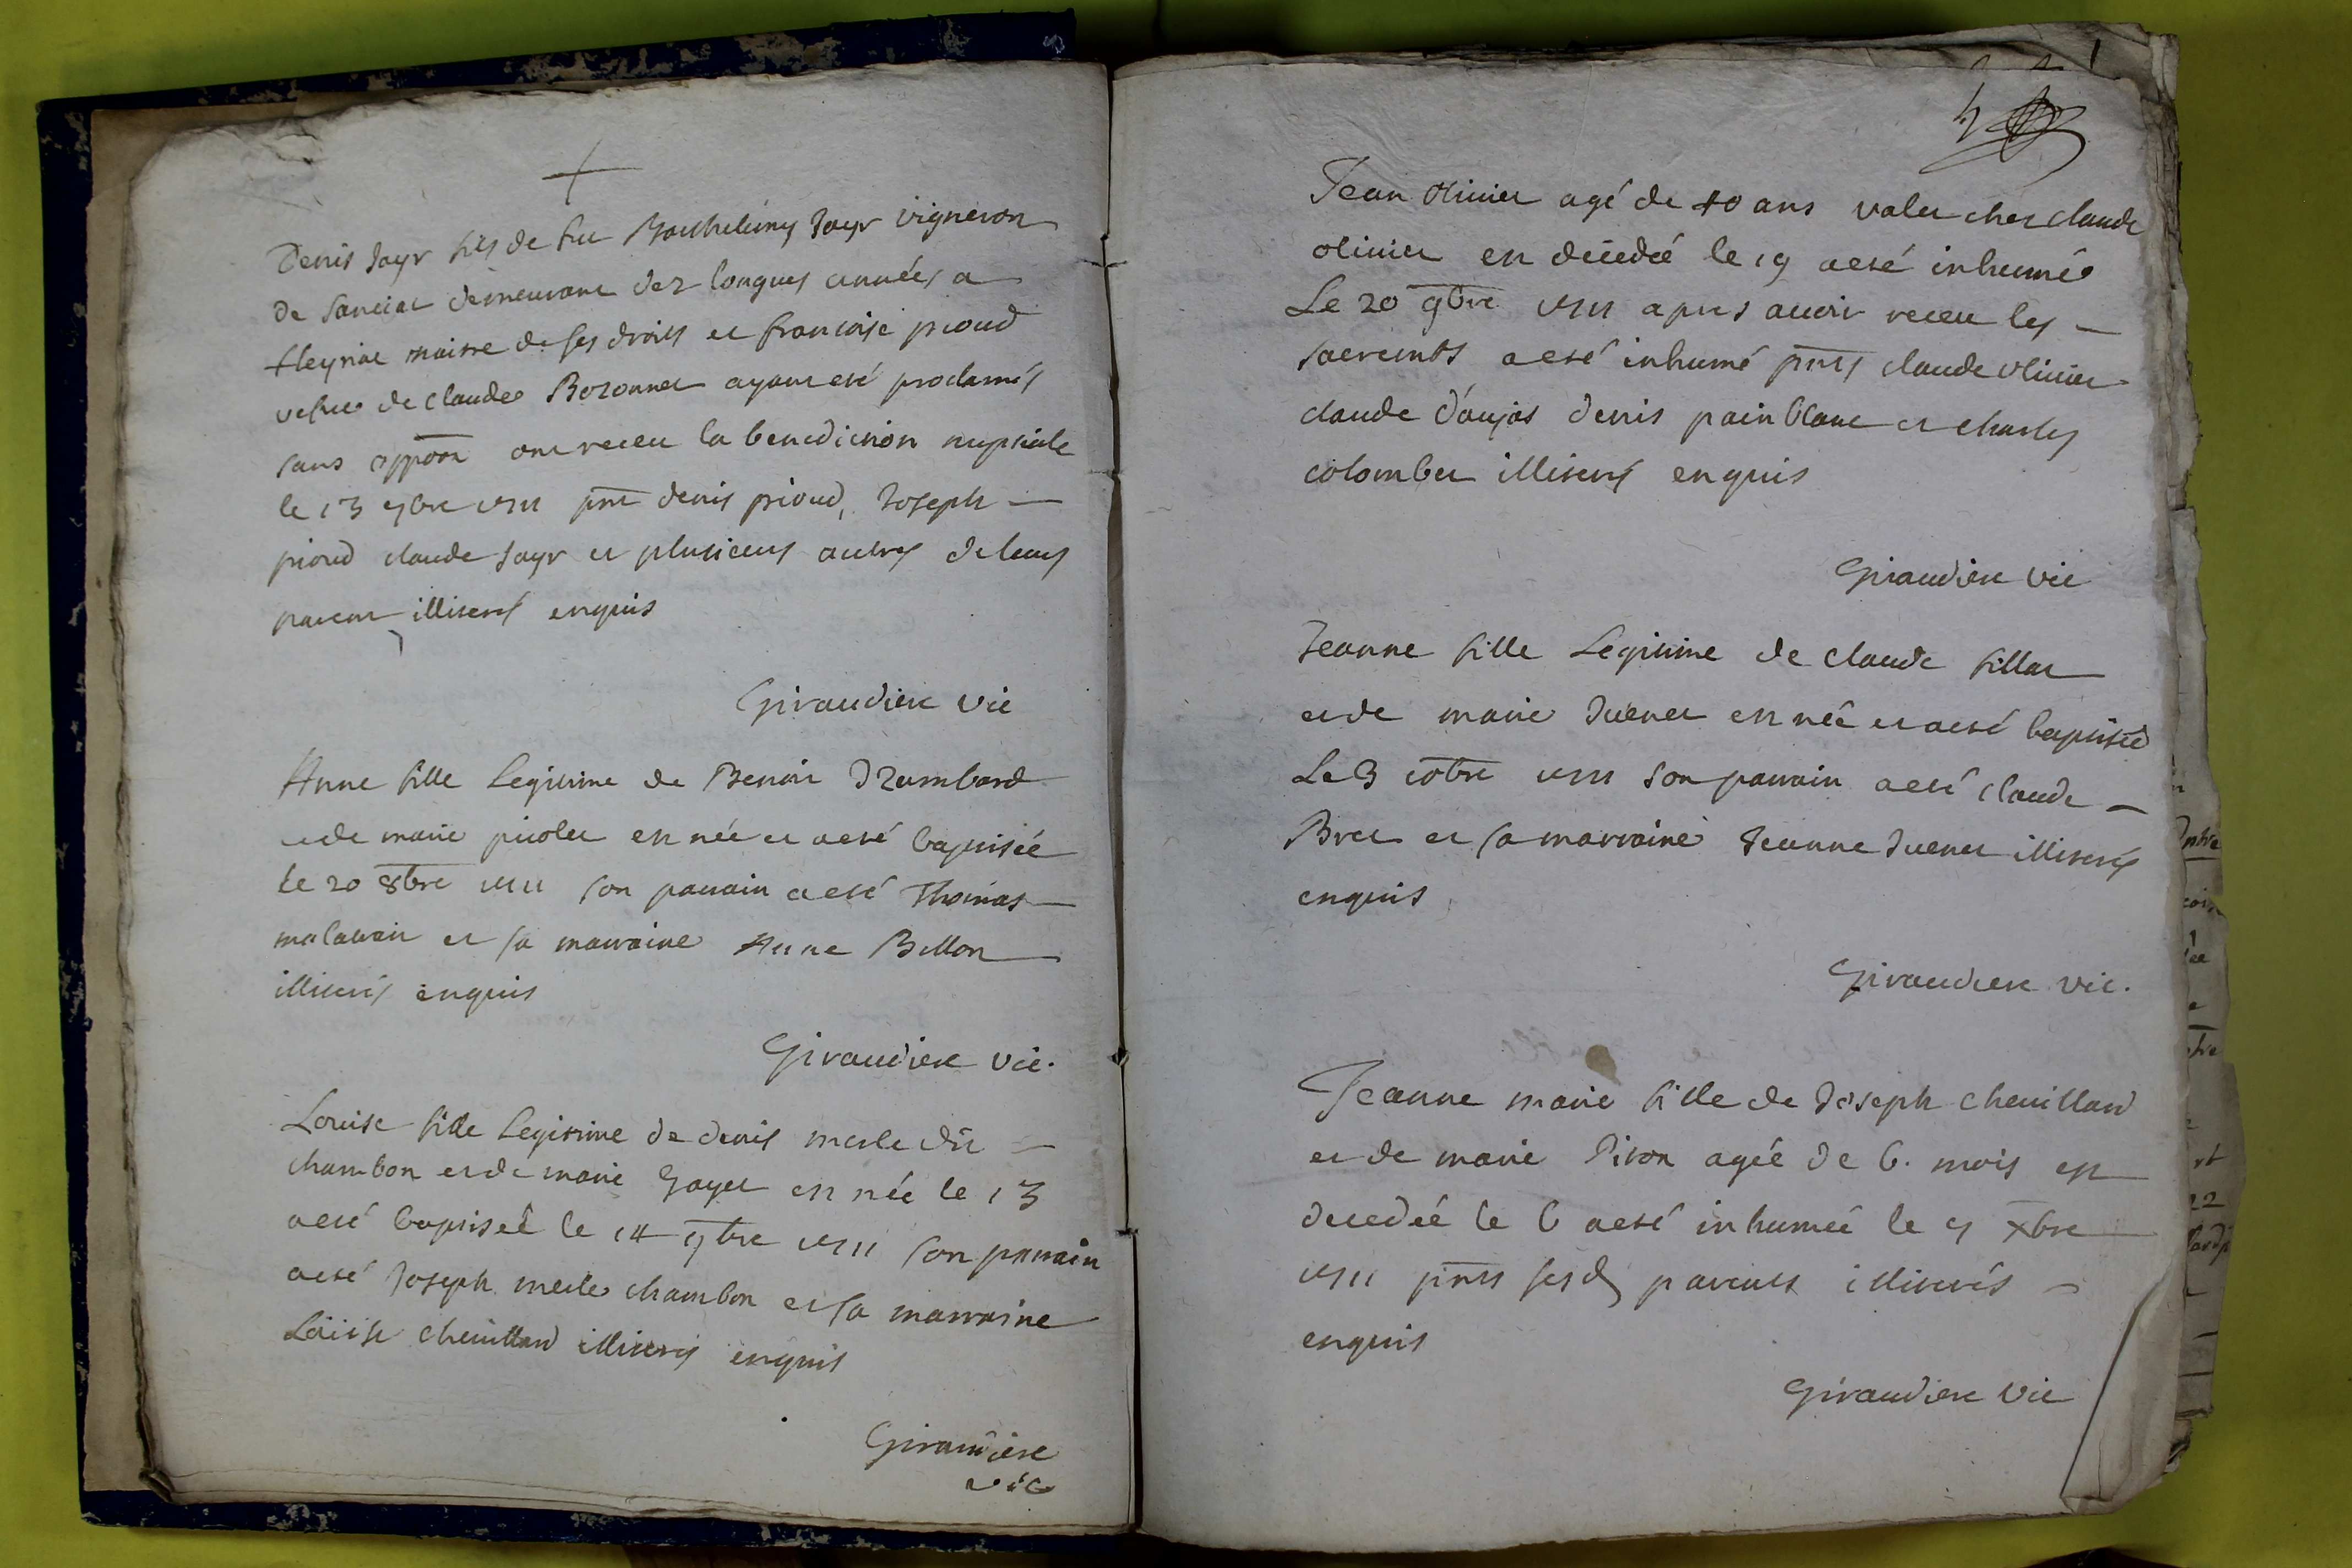 Denis Jayr fils de feu Barthelemy Jayr vigneron
de Sanciat demeurant dez longues années a
fleyriat maitre de ses droits et francoise pioud
vefue de claude Bozonnet ayant esté proclamés
sans oppoon ont receu la benediction nuptiale
le 13 9bre 1711 pnt denis pioud, Joseph
pioud claude Jayr et plusieurs autres de leurs
parent illiterés enquis
Giraudiere vic
Anne fille Legitime de Benoit Drambard
et de marie picolet est née et a esté baptisée
le 20 8bre 1711 son parrain a esté Thomas
et sa marraine Anne Billon
illiterés enquis
Giraudiere vic.
Louise fille Legitime de denis merle dit
chambon et de marie Gayet est née le 13
a esté baptiseé le 14 9bre 1711 son parrain
a esté Joseph merle chambon et sa marraine
Loüise cheuillard illiterés enquis
Giraudiere
vic
Jean oliuier agé de 40 ans valet ches claude
oliuier est décédé le 19 a esté inhumé
Le 20 9bre 1711 apres auoir receu les
sacremts a esté inhumé pnts claude oliuier
claude daujas denis painblanc et charles
colombet illiterés enquis
Giraudiere vic
Jeanne fille Legitime de claude fillat
et de marie Juenet est née et a esté baptisée
Le 3 10bre 1711 son parrain a esté claude
Bret et sa marraine Jeanne Juenet illiterés
enquis
Giraudiere vic.
Jeanne marie fille de Joseph cheuillard
et de marie Piron agée de 6. mois est
decedeé le 6 a esté inhumeé le 7 xbre
1711 pnts sesd parents illiterés
enquis
Giraudiere vic